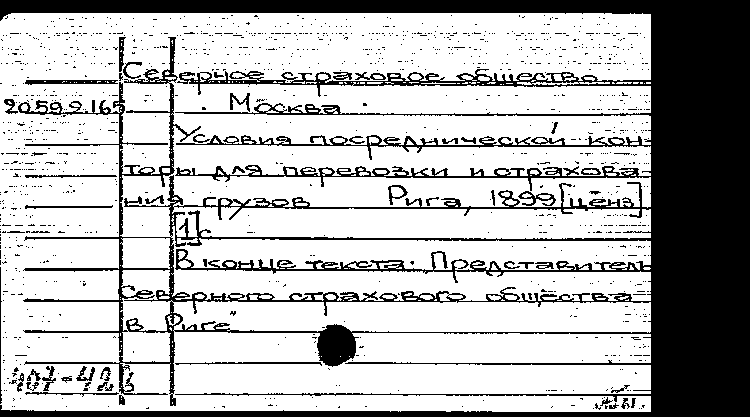 Северное страховое общество
20.59.2.165 . Москва .
Условия посреднической кон-
торы для перевозки и страхова-
ния грузов Рига, 1899 [ценз]
[1]с
В конце текста: Представитель
Северного страхового общества
в Риге"
407-423